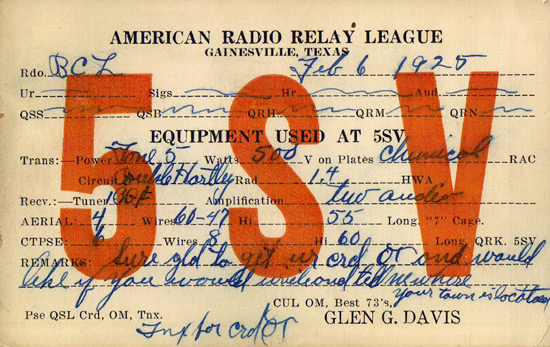 AMERICAN RADIO RELAY LEAGUE
GAINESVILLE, TEXAS
Rdo. BCL Feb 6 1925
Ur Sigs Hr Aud.
QSS QSB QRH QRM QRN
5SV
EQUIPMENT USED AT 5SV
Trans:—Power 5 Watts. 500 V on Plates chemical RAC
Circuit Hartley Rad. 1.4 HWA
Recv.:—Tuner Amplification two audio
AERIAL 4 Wires 60-47 Hi 55 Long. "7" Cage.
CTPSE: 6 Wires 8 Hi 60 Long. QRK. 5SV
REMARKS: Sure gld to get ur crd OT and would
like if you would write and tell me where
your town is located
CUL OM, Best 73's,
Pse QSL Crd, OM, Tnx. GLEN G. DAVIS
Tnx for crd OT